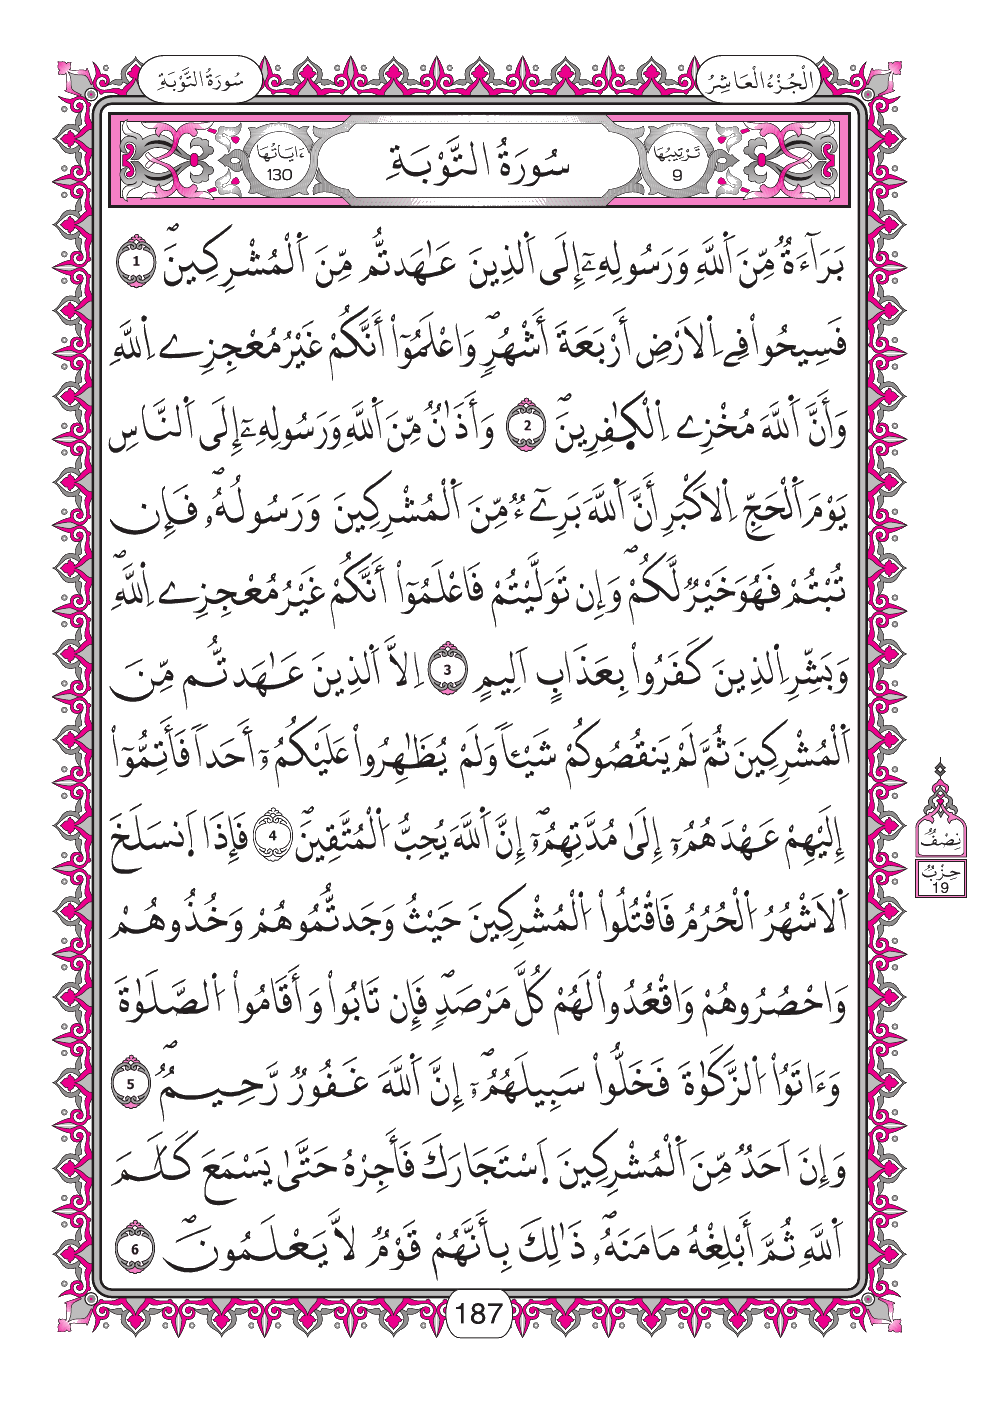 الْجُزْءُ الْعَاشِرُ
سُورَةُ التَّوْبَةِ
تَرْتِيبُهَا
9
سُورَةُ التَّوْبَةِ
ءَايَاتُهَا
130
بَرَآءَةٞ مِّنَ اَ۬للَّهِ وَرَسُولِهِۦٓ إِلَى اَ۬لذِينَ عَٰهَدتُّم مِّنَ اَ۬لْمُشْرِكِينَۖ 1
فَسِيحُواْ فِے اِ۬لَارْضِ أَرْبَعَةَ أَشْهُرٖۖ وَاعْلَمُوٓاْ أَنَّكُمْ غَيْرُ مُعْجِزِے اِ۬للَّهِ
وَأَنَّ اَ۬للَّهَ مُخْزِے اِ۬لْكٰ۪فِرِينَۖ 2 وَأَذَٰنٞ مِّنَ اَ۬للَّهِ وَرَسُولِهِۦٓ إِلَى اَ۬لنَّاسِ
يَوْمَ اَ۬لْحَجِّ اِ۬لَاكْبَرِ أَنَّ اَ۬للَّهَ بَرِےٓءٞ مِّنَ اَ۬لْمُشْرِكِينَ وَرَسُولُهُۥۖ فَإِن
تُبْتُمْ فَهُوَ خَيْرٞ لَّكُمْۖ وَإِن تَوَلَّيْتُمْ فَاعْلَمُوٓاْ أَنَّكُمْ غَيْرُ مُعْجِزِے اِ۬للَّهِۖ
وَبَشِّرِ اِ۬لذِينَ كَفَرُواْ بِعَذَابٍ اَلِيمٍ 3 اِلَّا اَ۬لذِينَ عَٰهَدتُّم مِّنَ
اَ۬لْمُشْرِكِينَ ثُمَّ لَمْ يَنقُصُوكُمْ شَيْـٔاٗ وَلَمْ يُظَٰهِرُواْ عَلَيْكُمُۥٓ أَحَداٗ فَأَتِمُّوٓاْ
إِلَيْهِمْ عَهْدَهُمُۥٓ إِلَىٰ مُدَّتِهِمُۥٓۖ إِنَّ اَ۬للَّهَ يُحِبُّ اُ۬لْمُتَّقِينَۖ 4 فَإِذَا اَ۪نسَلَخَ
اَ۬لَاشْهُرُ اُ۬لْحُرُمُ فَاقْتُلُواْ اُ۬لْمُشْرِكِينَ حَيْثُ وَجَدتُّمُوهُمْ وَخُذُوهُمْ
وَاحْصُرُوهُمْ وَاقْعُدُواْ لَهُمْ كُلَّ مَرْصَدٖۖ فَإِن تَابُواْ وَأَقَامُواْ اُ۬لصَّلَوٰةَ
وَءَاتَوُاْ اُ۬لزَّكَوٰةَ فَخَلُّواْ سَبِيلَهُمُۥٓۖ إِنَّ اَ۬للَّهَ غَفُورٞ رَّحِيمٞۖ 5
وَإِنَ اَحَدٞ مِّنَ اَ۬لْمُشْرِكِينَ اَ۪سْتَجَارَكَ فَأَجِرْهُ حَتَّىٰ يَسْمَعَ كَلَٰمَ
اَ۬للَّهِ ثُمَّ أَبْلِغْهُ مَامَنَهُۥۖ ذَٰلِكَ بِأَنَّهُمْ قَوْمٞ لَّا يَعْلَمُونَۖ 6
نِصْفٌ
حِزْبٌ
19
187